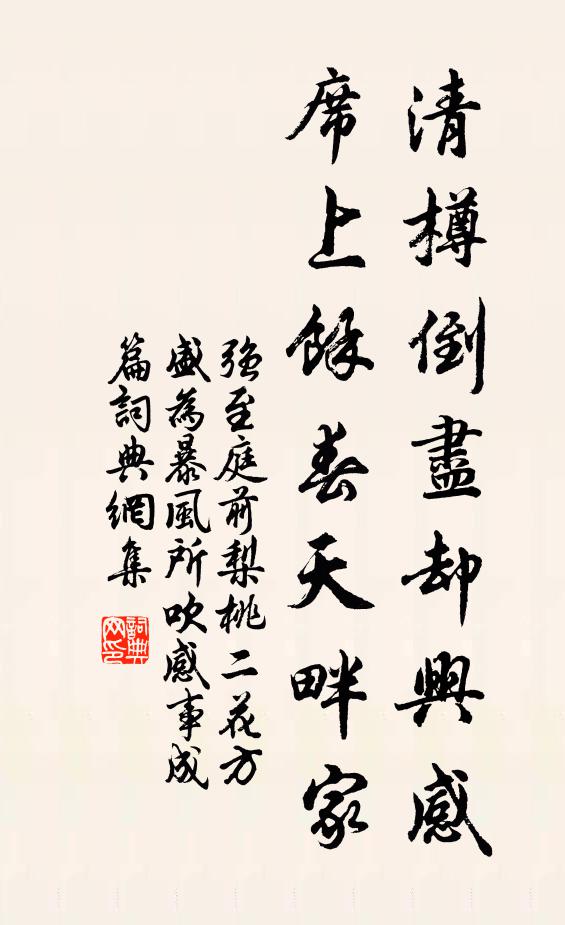 清樽倒盡却興感
席上餘春天畔家
強至庭前梨桃二花方
盛為暴風所吹感事成
篇詞典網集
詞典網印